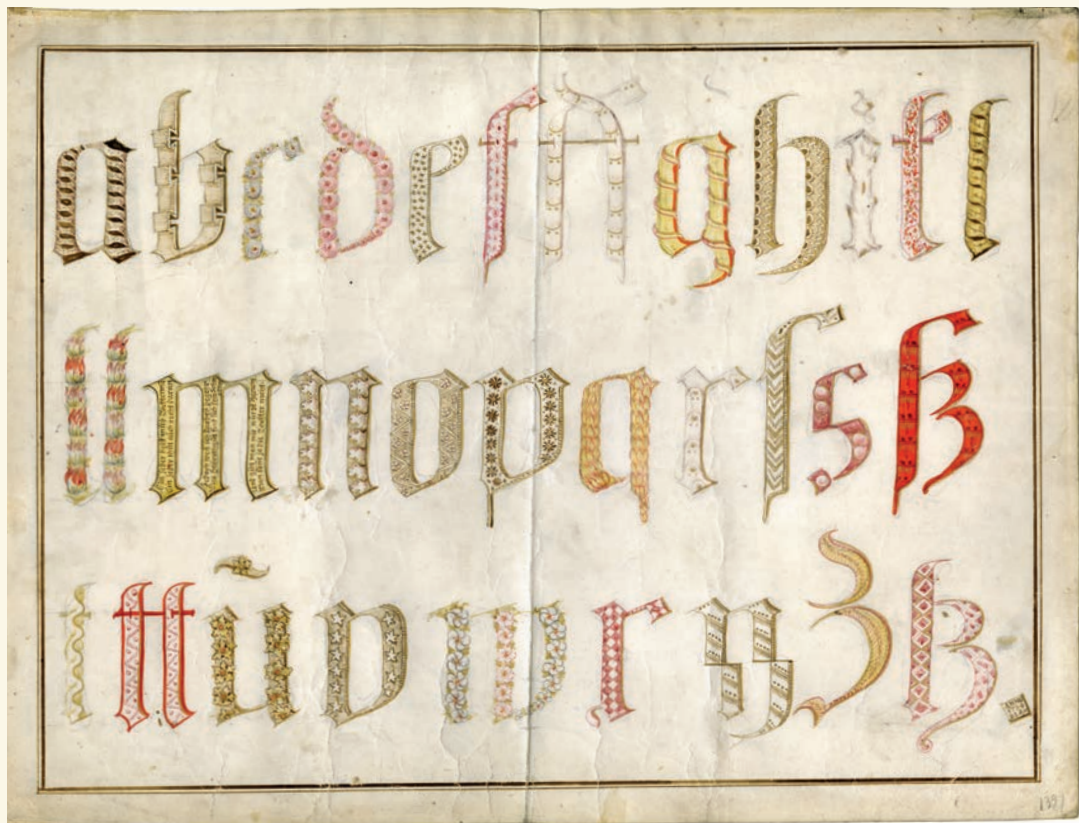 a b c d e f ff g h i k l
ll m n o p q r ſ s ß
t tt ü v w x y z tz .